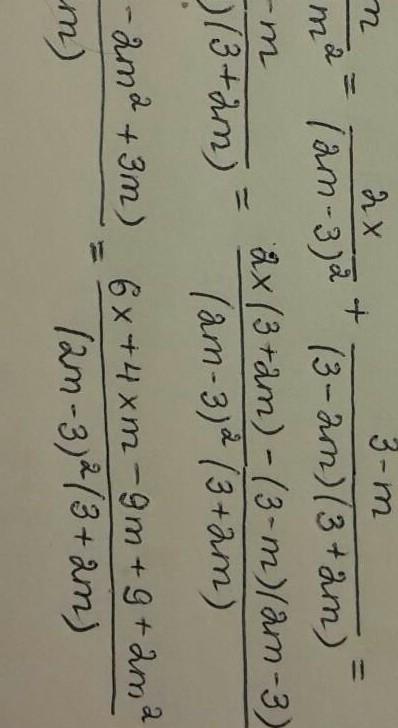 m/m² = 2x/(2m-3)² + 3-m/(3-2m)(3+2m) =
-m/)(3+2m) = 2x(3+2m)-(3-m)(2m-3)/(2m-3)²(3+2m)
-2m²+3m)/m) = 6x+4xm-9m+9+2m²/(2m-3)²(3+2m)